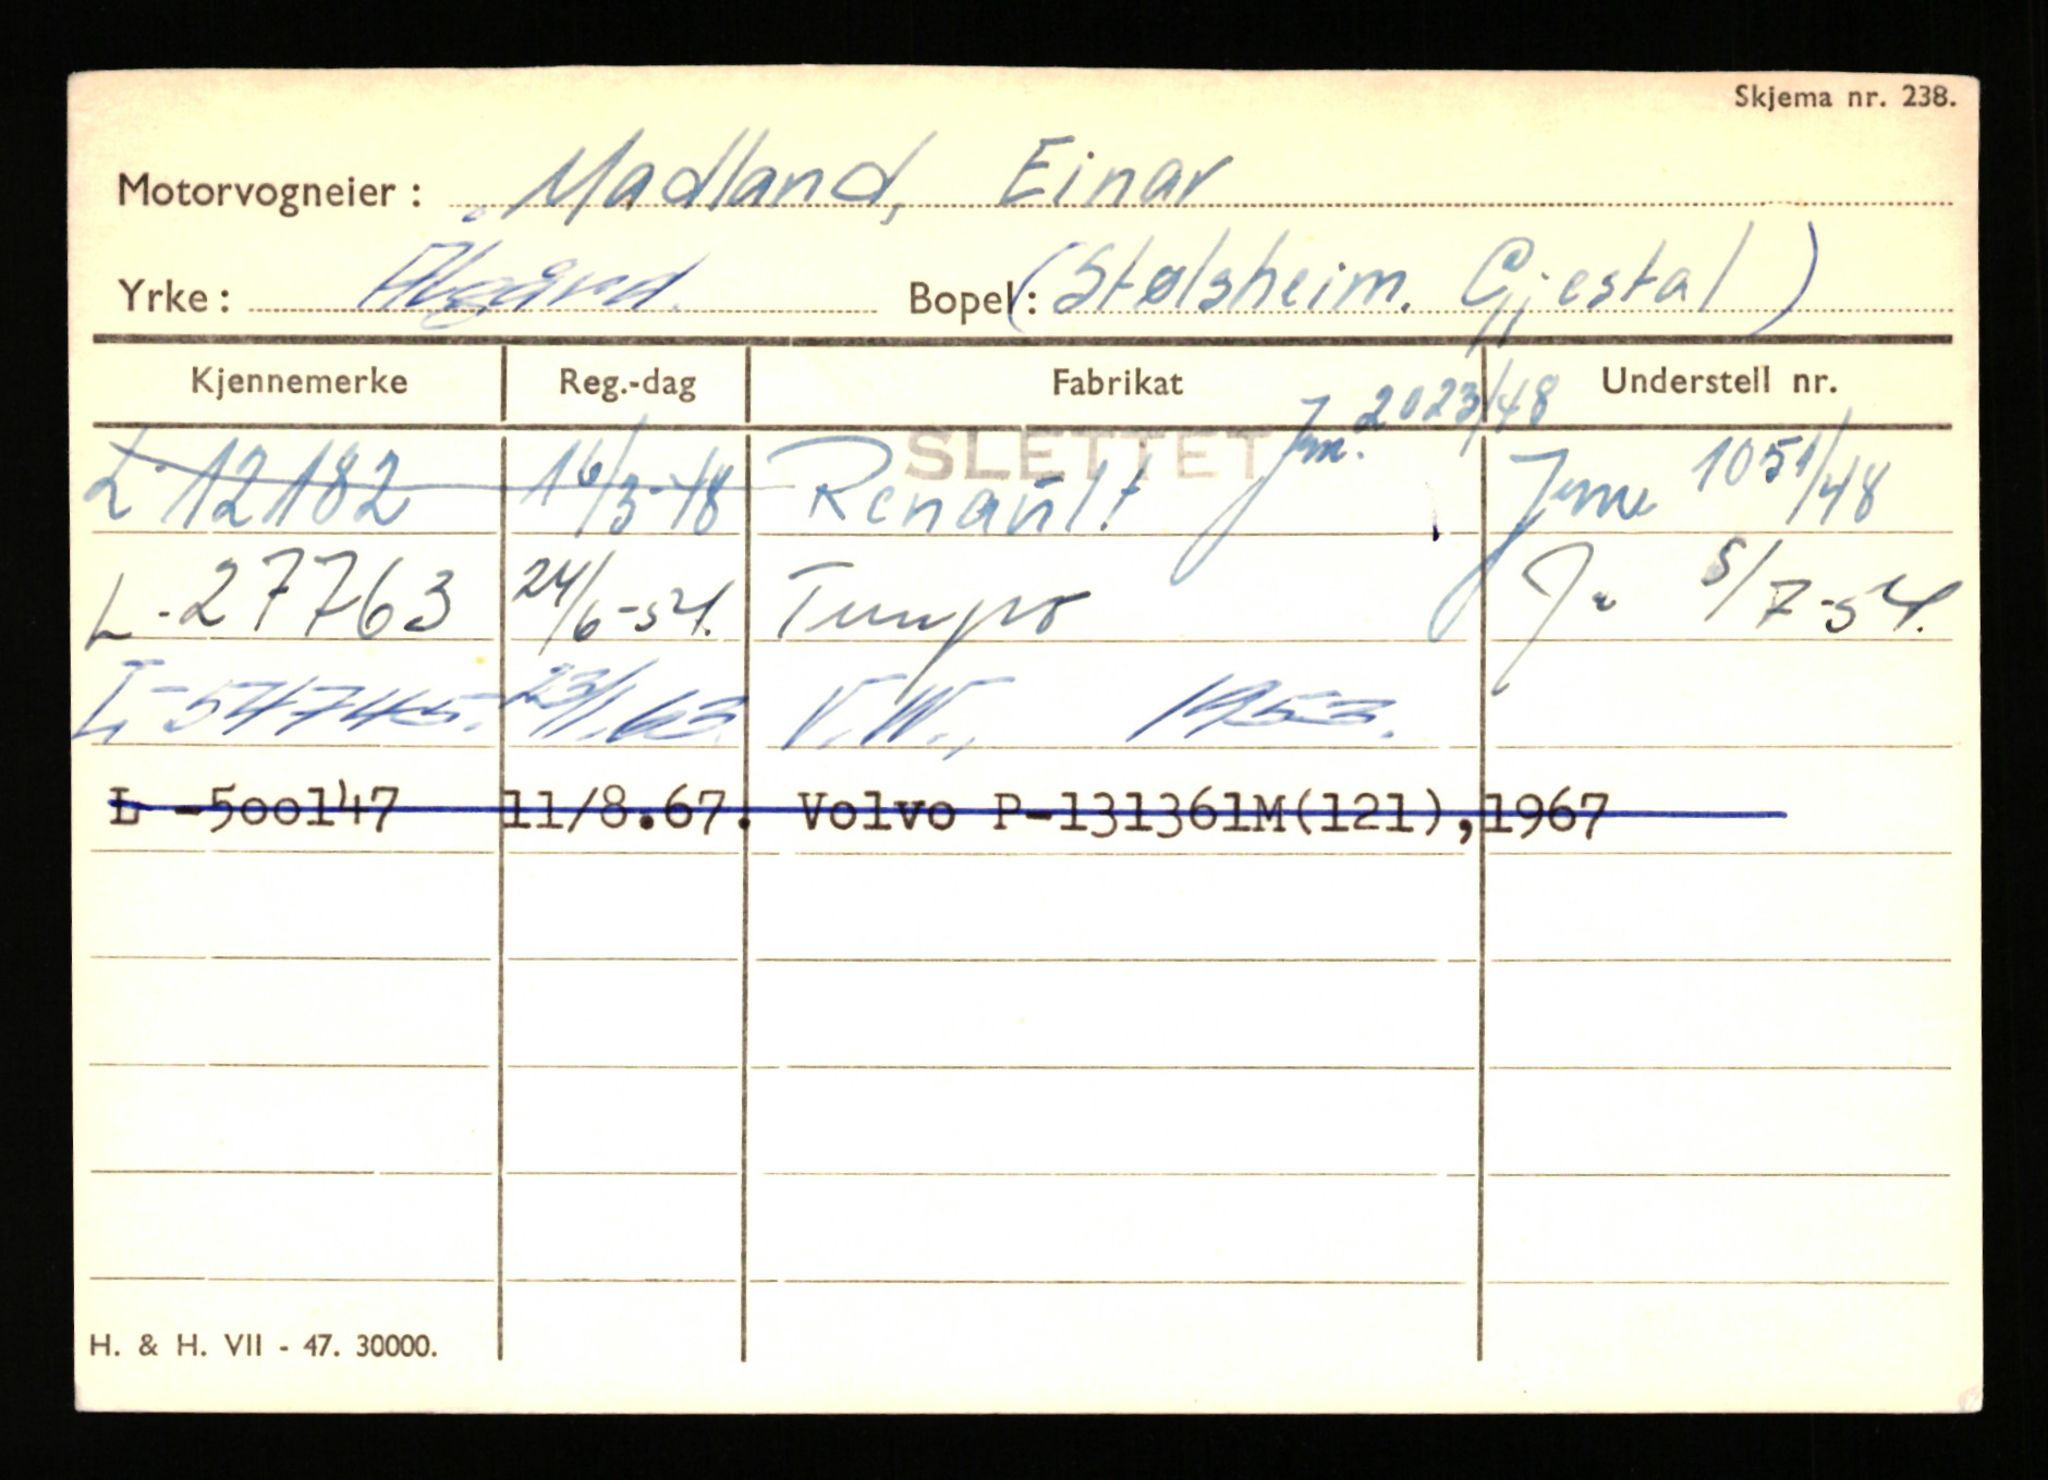 Skjema nr. 238.
Motorvogneier: Madland, Einar
Yrke: Ålgård. Bopel: (Stølsheim. Gjestal)
Kjennemerke Reg.-dag Fabrikat Understell nr.
Jnr. 2023/48
SLETTET
L-12182 16/3-48 Renault 1051/48
L-27763 24/6-54. Tempo 5/7-54.
L-54745. 23/1.63. V.W., 1953.
L -500147 11/8.67. Volvo P-131361M(121),1967
H. & H. VII - 47. 30000.